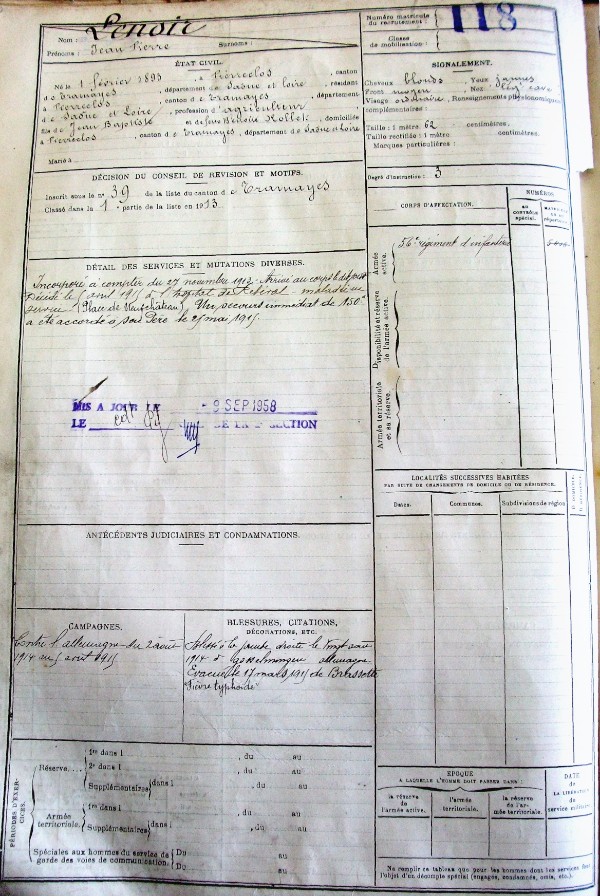 Nom : Lenoir
Prénoms : Jean Pierre Surnoms :
Numéro matricule du recrutement : 118
Classe de mobilisation :
ÉTAT CIVIL.
Né le 1 février 1893, à Pierreclos, canton
de Tramayes, département de Saône et Loire, résident
à Pierreclos, canton de Tramayes, département
de Saône et Loire, profession d'agriculteur
fils de Jean Baptiste et de feue Benoite, domiciliés
à Pierreclos, canton de Tramayes, département de Saône et Loire
Marié à
SIGNALEMENT.
Cheveux blonds Yeux jaunes
Front moyen Nez
Visage ordinaire, Renseignements physionomiques
complémentaires :
Taille : 1 mètre 62 centimètres.
Taille rectifiée : 1 mètre centimètres.
Marques particulières :
Degré d'instruction : 3
DÉCISION DU CONSEIL DE REVISION ET MOTIFS.
Inscrit sous le n° 39 de la liste du canton de Tramayes
Classé dans la 1 partie de la liste en 1913.
DÉTAIL DES SERVICES ET MUTATIONS DIVERSES.
Incorporé à compter du 27 novembre 1913. Arrivé au corps le dit jour
Décédé le 5 avril 1915 à l'hôpital
service (Place de Neufchâteau) Un secours immédiat de 150 f
a été accordé à son Père le 25 mai 1915.
MIS A JOUR LE 9 SEP 1958
LE DE LA SECTION
ANTÉCÉDENTS JUDICIAIRES ET CONDAMNATIONS.
CAMPAGNES.
Contre l'allemagne du 2 août
1914 au 5 avril 1915
BLESSURES, CITATIONS,
DÉCORATIONS, ETC.
Blessé à la jambe droite le vingt août
1914 à allemagne
Evacué le 17 mars 1915 de
"Fièvre typhoïde"
CORPS D'AFFECTATION.
NUMÉROS
au contrôle spécial.
Armée active.
56e régiment d'infanterie
Disponibilité et réserve de l'armée active.
Armée territoriale et sa réserve.
LOCALITÉS SUCCESSIVES HABITÉES
PAR SUITE DE CHANGEMENTS DE DOMICILE OU DE RÉSIDENCE.
Dates. Communes. Subdivisions de région
PÉRIODES D'EXERCICES.
Réserve....
1re dans l , du au
2e dans l , du au
Supplémentaires dans l , du au
Armée territoriale.
1re dans l , du au
Supplémentaires dans l , du au
Spéciales aux hommes du service de garde des voies de communication.
Du au
Du au
ÉPOQUE
A LAQUELLE L'HOMME DOIT PASSER DANS :
la réserve de l'armée active.
l'armée territoriale.
la réserve de l'armée territoriale.
DATE
de
LA LIBÉRATION
du
service militaire.
Ne remplir ce tableau que pour les hommes dont les services
l'objet d'un décompte spécial (engagés, condamnés, omis, etc.).